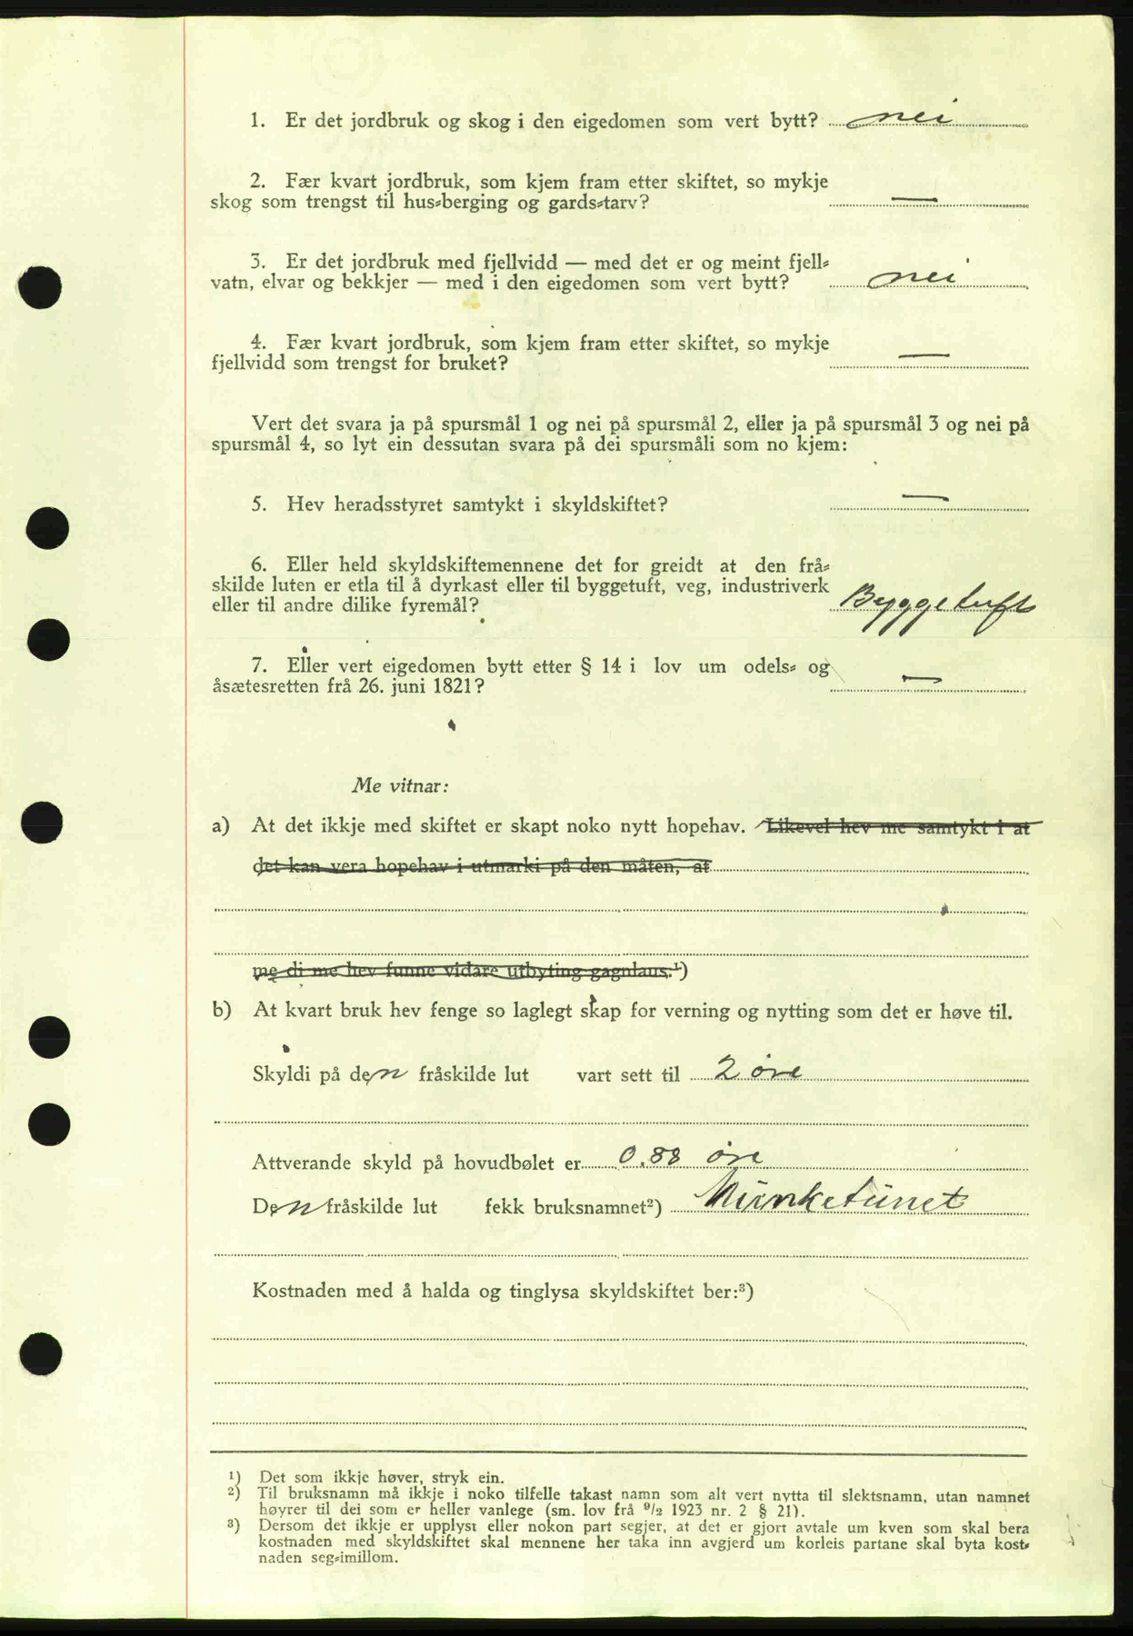 1. Er det jordbruk og skog i den eigedomen som vert bytt? nei
2. Fær kvart jordbruk, som kjem fram etter skiftet, so mykje
skog som trengst til hus⸗berging og gards⸗tarv? —
3. Er det jordbruk med fjellvidd — med det er og meint fjell⸗
vatn, elvar og bekkjer — med i den eigedomen som vert bytt? nei
4. Fær kvart jordbruk, som kjem fram etter skiftet, so mykje
fjellvidd som trengst for bruket? —
Vert det svara ja på spursmål 1 og nei på spursmål 2, eller ja på spursmål 3 og nei på
spursmål 4, so lyt ein dessutan svara på dei spursmåli som no kjem:
5. Hev heradsstyret samtykt i skyldskiftet? —
6. Eller held skyldskiftemennene det for greidt at den frå⸗
skilde luten er etla til å dyrkast eller til byggetuft, veg, industriverk
eller til andre dilike fyremål? Byggetuft
7. Eller vert eigedomen bytt etter § 14 i lov um odels⸗ og
åsætesretten frå 26. juni 1821? —
Me vitnar:
a) At det ikkje med skiftet er skapt noko nytt hopehav. Likevel hev me samtykt i at
det kan vera hopehav i utmarki på den måten, at
me di me hev funne vidare utbyting gagnlaus.¹)
b) At kvart bruk hev fenge so laglegt skap for verning og nytting som det er høve til.
Skyldi på den fråskilde lut vart sett til 2 øre
Attverande skyld på hovudbølet er 0.88 øre
Den fråskilde lut fekk bruksnamnet²) Munketunet
Kostnaden med å halda og tinglysa skyldskiftet ber:³)
¹) Det som ikkje høver, stryk ein.
²) Til bruksnamn må ikkje i noko tilfelle takast namn som alt vert nytta til slektsnamn, utan namnet
høyrer til dei som er heller vanlege (sm. lov frå ⁹/₂ 1923 nr. 2 § 21).
³) Dersom det ikkje er upplyst eller nokon part segjer, at det er gjort avtale um kven som skal bera
kostnaden med skyldskiftet skal mennene her taka inn avgjerd um korleis partane skal byta kost⸗
naden seg⸗imillom.